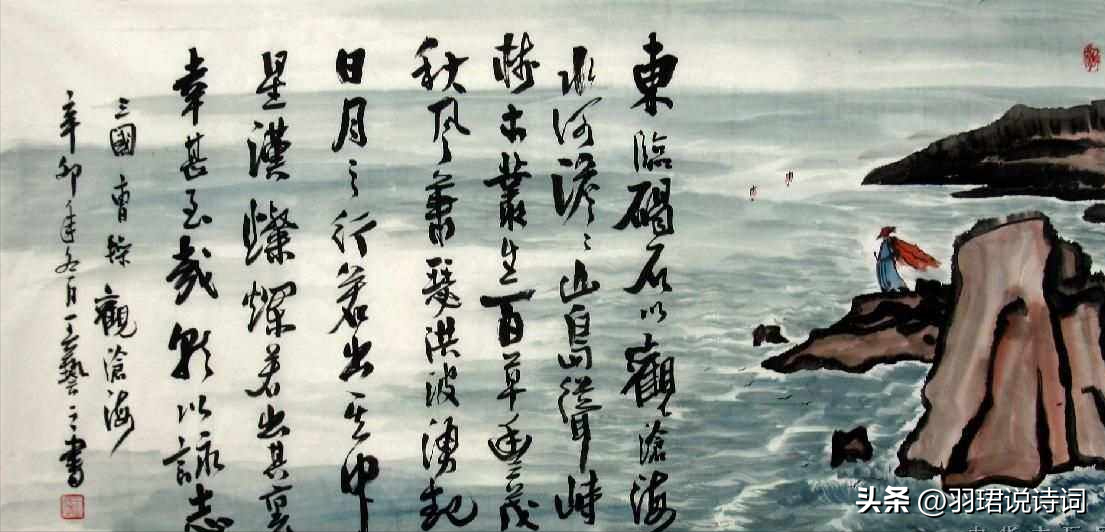 東臨碣石以觀滄海
水河澹〻山島聳峙
樹木叢生百草豐茂
秋風蕭瑟洪波湧起
日月之行若出其中
星漢燦爛若出其裏
幸甚至哉歌以詠志
三國曹操觀滄海
辛卯年冬月藝之書
头条 @羽珺说诗词